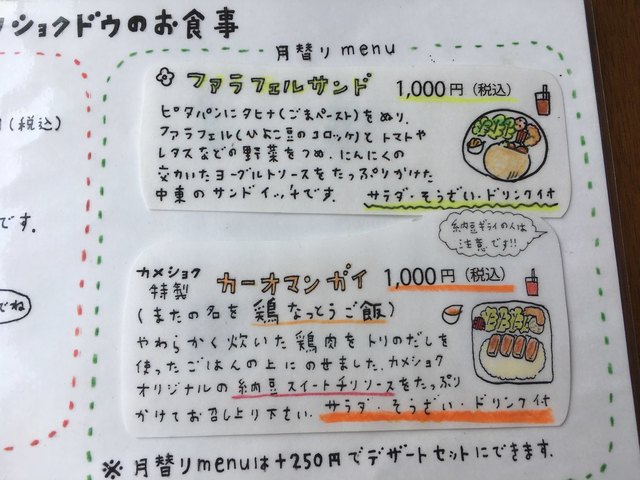 ショクドウのお食事
月替り menu
ファラフェルサンド 1,000円(税込)
ピタパンにタヒナ(ごまペースト)をぬり、
ファラフェル(ひよこ豆のコロッケ)とトマトや
レタスなどの野菜をつめ、にんにくの
交かいたヨーグルトソースをたっぷりかけた
中東のサンドイッチです。 サラダ・そうざい・ドリンク付
納豆ギライの人は
注意です!!
カメショク
特製 カーオマンガイ 1,000円(税込)
(またの名を 鶏なっとうご飯)
やわらかく炊いた鶏肉をトリのだしを
使ったごはんの上にのせました。カメショク
オリジナルの納豆スイートチリソースをたっぷり
かけてお召し上り下さい。サラダ・そうざい・ドリンク付
※月替りmenuは+250円でデザートセットにできます.
(税込)
です.
でね